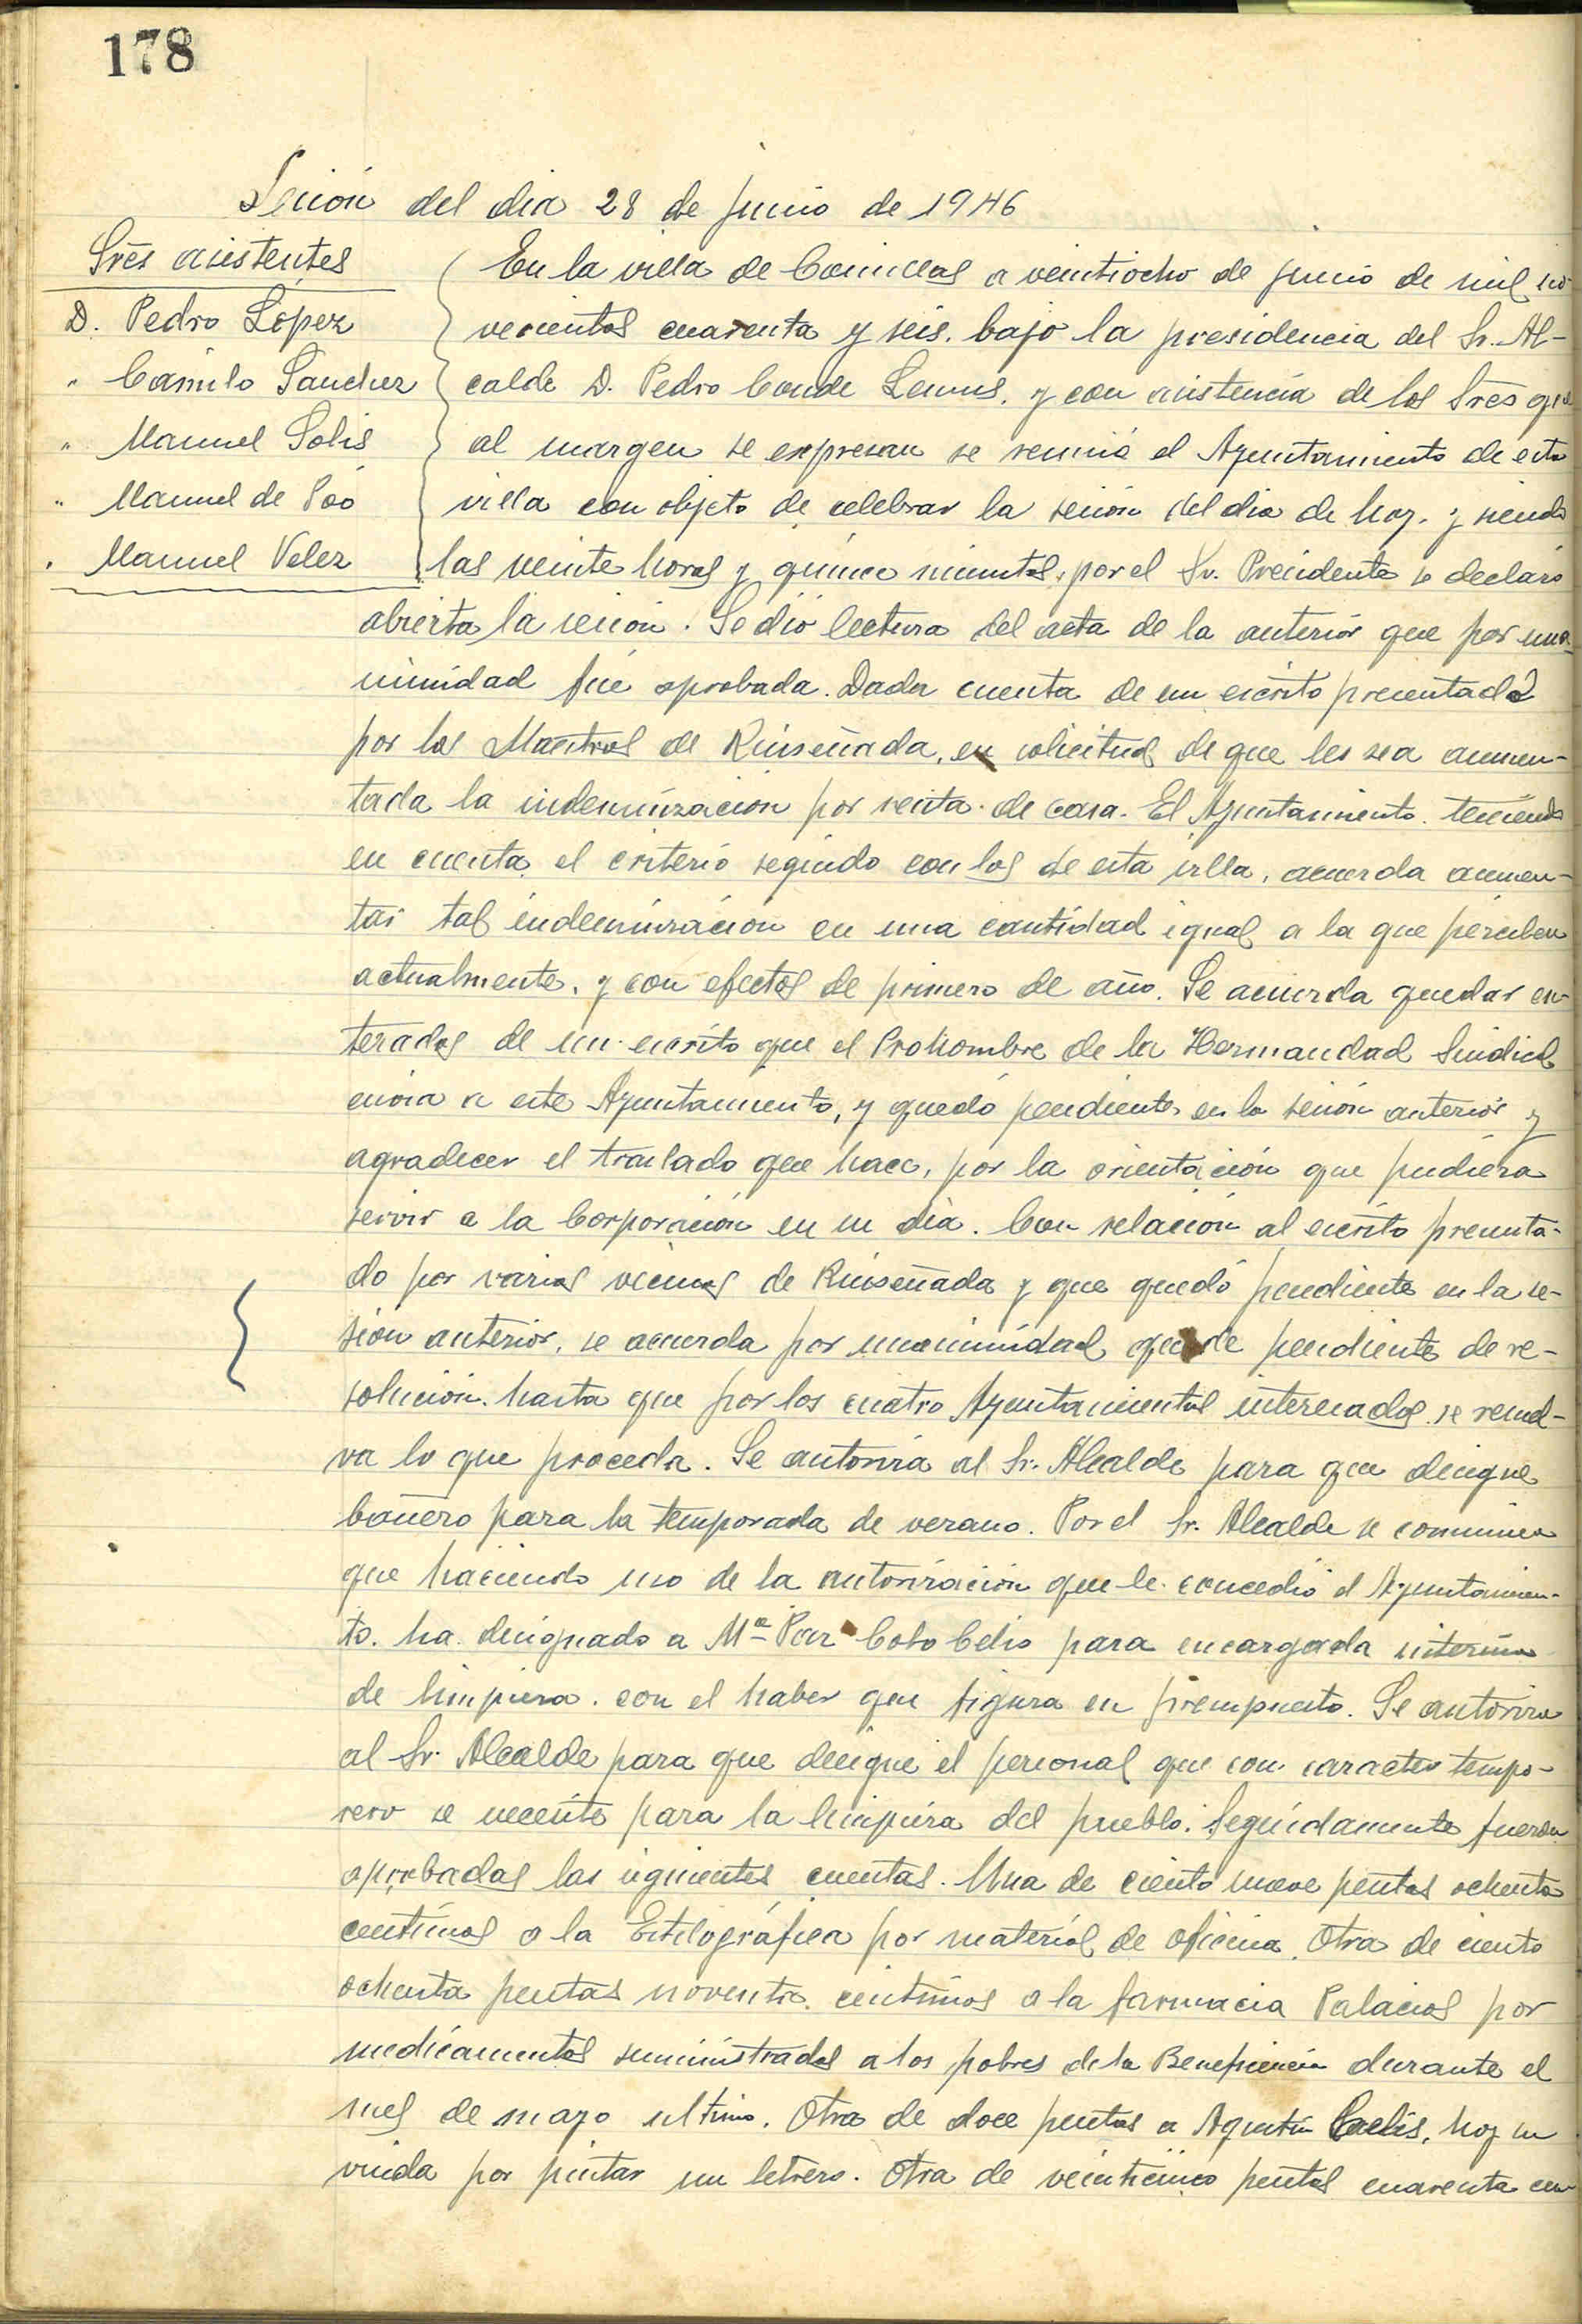 178
Sesión del dia 28 de junio de 1946
Sres asistentes
D. Pedro López
" Camilo Sanchez
" Manuel Solis
" Manuel de Poó
" Manuel Velez
En la villa de Comillas a veintiocho de junio de mil no-
vecientos cuarenta y seis. bajo la presidencia del Sr. Al-
calde D. Pedro Conde Lemus, y con asistencia de los Sres que
al margen se expresan se reunió el Ayuntamiento de esta
villa con objeto de celebrar la sesión del dia de hoy. y siendo
las veinte horas y quince minutos, por el Sr. Presidente se declaró
abierta la sesión. Se dió lectura del acta de la anterior que por una-
nimidad fué aprobada. Dada cuenta de un escrito presentado
por los Maestros de Ruiseñada, en solicitud de que les sea aumen-
tada la indemnización por renta de casa. El Ayuntamiento. teniendo
en cuenta el criterio seguido con los de esta villa, acuerda aumen-
tar tal indemnización en una cantidad igual a la que perciben
actualmente, y con efectos de primero de año. Se acuerda quedar en-
terados de un escrito que el Prohombre de la Hermandad Sindical
envia a este Ayuntamiento, y quedó pendiente en la sesión anterior y
agradecer el traslado que hace, por la orientación que pudiera
servir a la Corporación en su dia. Con relación al escrito presenta-
do por varios vecinos de Ruiseñada y que quedó pendiente en la se-
sion anterior, se acuerda por unanimidad quede pendiente de re-
solucion. hasta que por los cuatro Ayuntamientos interesados. se resuel-
va lo que proceda. Se autoriza al Sr. Alcalde para que designe
bañero para la temporada de verano. Por el Sr. Alcalde se comunica
que haciendo uso de la autorización que le concedió el Ayuntamien-
to. ha designado a Mª Paz Cobo Celis para encargada interina
de limpieza. con el haber que figura en presupuesto. Se autoriza
al Sr. Alcalde para que designe el personal que con caracter tempo-
rero se necesite para la limpieza del pueblo. Seguidamente fueron
aprobadas las siguientes cuentas. Una de ciento nueve pesetas ochenta
centimos a la Estilográfica por material de oficina. Otra de ciento
ochenta pesetas noventa centimos a la farmacia Palacios por
medicamentos suministrados a los pobres de la Beneficiencia durante el
mes de mayo ultimo. Otra de doce pesetas a Agustin Celis, hoy su
viuda por pintar un letrero. Otra de veinticinco pesetas cuarenta cen-